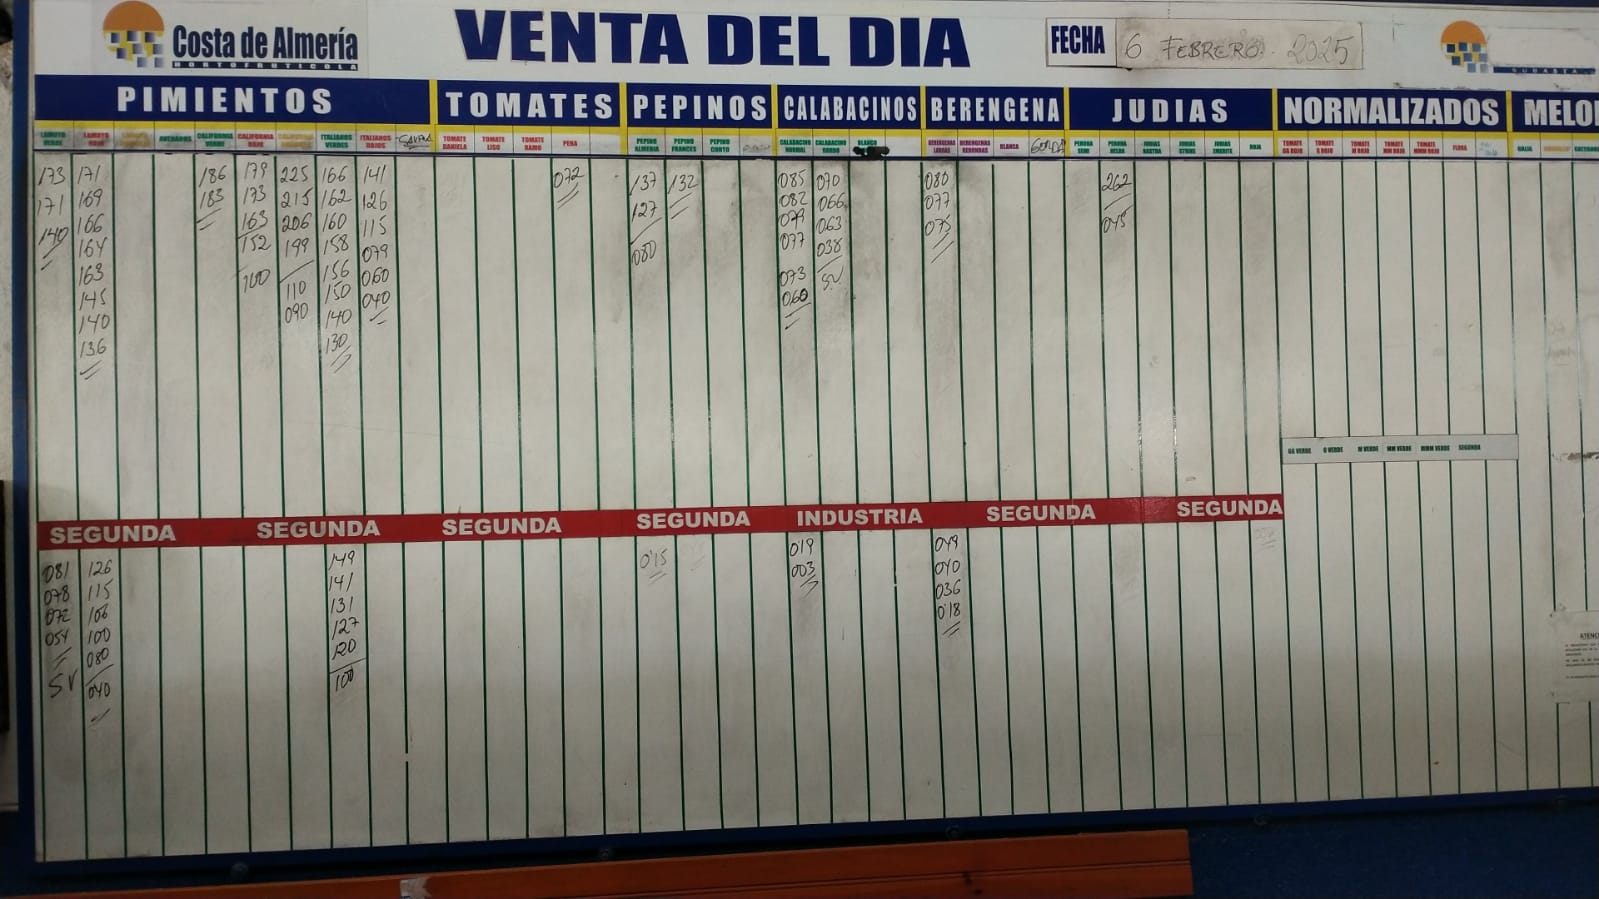 Costa de Almería
HORTOFRUTICOLA
VENTA DEL DIA
FECHA 6 FEBRERO 2025
SUBASTA
PIMIENTOS TOMATES PEPINOS CALABACINOS BERENGENA JUDIAS NORMALIZADOS MELO
LAMUYO VERDE LAMUYO ROJO ASURADOS CALIFORNIA VERDE CALIFORNIA ROJO ITALIANOS VERDES ITALIANOS ROJOS TOMATE DANIELA TOMATE LISO TOMATE RAMO PERA PEPINO ALMERIA PEPINO FRANCES PEPINO CORTO CALABACINO NORMAL CALABACINO GORDO BLANCO BERENGENAS LARGAS BERENGENAS REDONDAS BLANCA GORDA PERONA SEMI PERONA HELDA JUDIAS RASTRA JUDIAS STRIKE JUDIAS EMERITE ROJA TOMATE GG ROJO TOMATE G ROJO TOMATE M ROJO TOMATE MM ROJO TOMATE MMM ROJO FLORA GALIA
173 171 186 179 225 166 141 072 137 132 085 070 080 262
171 169 183 173 215 162 126 127 082 066 077 045
140 166 163 206 160 115 080 079 063 075
164 152 199 158 079 077 038
163 100 110 156 060 073 SV
145 090 150 040 060
140 140
136 130
GG VERDE G VERDE M VERDE MM VERDE MMM VERDE SEGUNDA
SEGUNDA SEGUNDA SEGUNDA SEGUNDA INDUSTRIA SEGUNDA SEGUNDA
081 126 149 0'15 019 049
078 115 141 003 040
072 106 131 036
054 100 127 018
SV 080 120
040 100